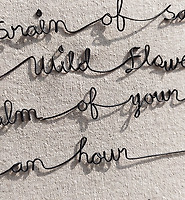 Grain of
Wild Flowe
alm of your
an hour